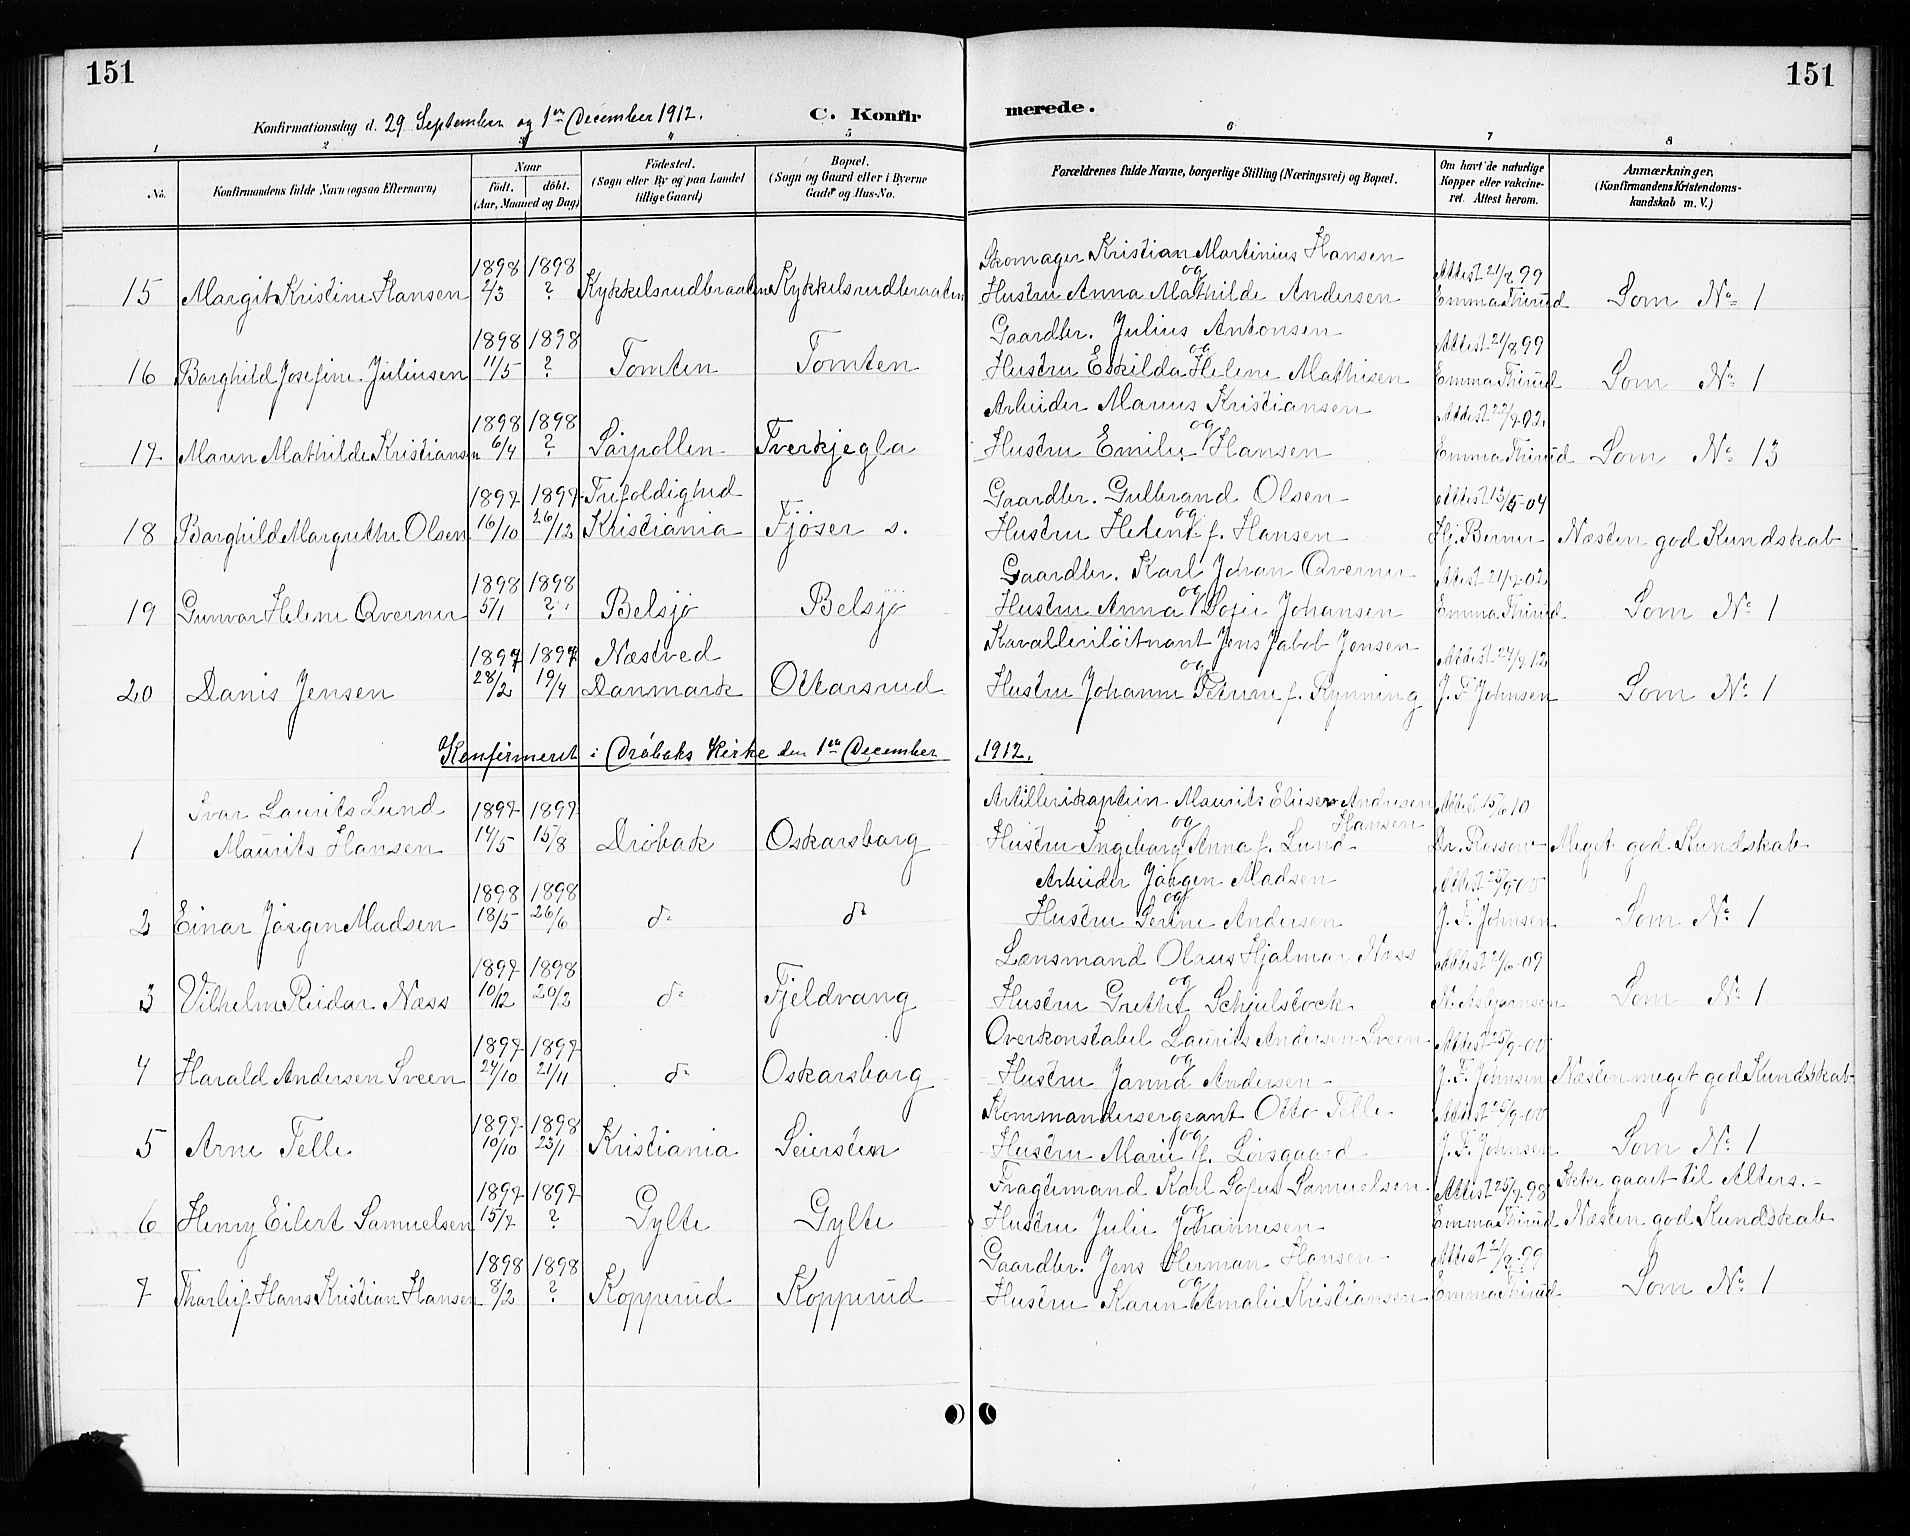 151
151
Konfirmationsdag d. 29 September og 1en December 1912.
C. Konfirmerede.
1 2 3 4 5 6 7 8
No.
Konfirmandens fulde Navn (ogsaa Efternavn)
Naar
født. døbt.
(Aar, Maaned og Dag)
Födested.
(Sogn eller By og paa Landet
tillige Gaard)
Bopæl.
(Sogn og Gaard eller i Byerne
Gade og Hus-No.
Forældrenes fulde Navne, borgerlige Stilling (Næringsvei) og Bopæl.
Om havt de naturlige
Kopper eller vakcine-
ret. Attest herom.
Anmærkninger,
(Konfirmandens Kristendoms-
kundskab m. V.)
1898 1898 Skomager Kristian Martinius Hansen Attest 21/8 99
15 Margit Kristine Hansen 2/3 ? Kykkelsrudbraaten Kykkelsrudbraaten og Hustru Anna Mathilde Andersen Emma Thirud Som No 1
1898 1898 Gaardbr. Julius Antonsen Attest 21/8 99
16 Borghild Josefine Juliusen 11/5 ? Tomten Tomten og Hustru Eskilda Helene Mathisen Emma Thirud Som No 1
1898 1898 Arbeider Marius Kristiansen Attest
17 Maren Mathilde Kristiansen 6/4 ? Sørpollen Tverkjegla og Hustru Emilie Hansen Emma Thirud Som No 13
1897 1897 Trefoldighed Gaardbr. Gulbrand Olsen Attest 13/5-04
18 Borghild Margrethe Olsen 16/10 26/12 Kristiania Fjöser s. og Hustru Helene f. Hansen Hj. Berner Næsten god Kundskab
1898 1898 Gaardbr. Karl Johan Qverner Attest
19 Gunvor Helene Qverner 5/1 ? Belsjø Belsjø og Hustru Anna Sofie Johansen Emma Thirud Som No 1
1897 1897 Næstved Kavalleriløitnant Jens Jakob Jensen Attest 24/9 12
20 Danis Jensen 28/2 19/4 Danmark Ottarsrud og Hustru Johanne Petrine f. Rynning J. F. Johnsen Som No 1
Konfirmeret i Drøbaks Kirke den 1en December 1912.
Ivar Laurits Lund 1897 1897 Artillerikaptein Maurits Eliser Andresen Hansen Attest 15/6 10
1 Maurits Hansen 14/5 15/8 Drøbak Oskarsborg og Hustru Ingeborg Anna f. Lund Dr. Rossow Meget god Kundskab
1898 1898 Arbeider Jørgen Madsen Attest 25/9-00
2 Einar Jørgen Madsen 18/5 26/6 do do og Hustru Serine Andersen J. F. Johnsen Som No 1
1897 1898 Lensmand Olaus Hjalmar Næss Attest
3 Vilhelm Reidar Næss 10/12 20/2 do Fjeldvang og Hustru Grethe Schjelstock N. Asbjørnsen Som No 1
1897 1897 Overkonstabel Laurits Andersen Sveen Attest 25/9-00
4 Harald Andersen Sveen 24/10 21/11 do Oskarsborg og Hustru Janna Andersen J. F. Johnsen Næsten meget god Kundskab
1897 1898 Kommandersergeant Otto Telle Attest 25/9-00
5 Arne Telle 10/10 23/1 Kristiania Seiersten og Hustru Marie f. Lorsgaard J. F. Johnsen Som No 1
1897 1897 Fragtemand Karl Sofus Samuelsen Attest 25/7-98 Ikke gaaet til Alters.
6 Henry Eilert Samuelsen 15/7 ? Gylte Gylte og Hustru Julie Johannesen Emma Thirud Næsten god Kundskab
1898 1898 Gaardbr. Jens Herman Hansen Attest 21/8-99
7 Thorleif Hans Kristian Hansen 8/2 ? Kopperud Kopperud og Hustru Karen Amalie Kristiansen Emma Thirud Som No 1